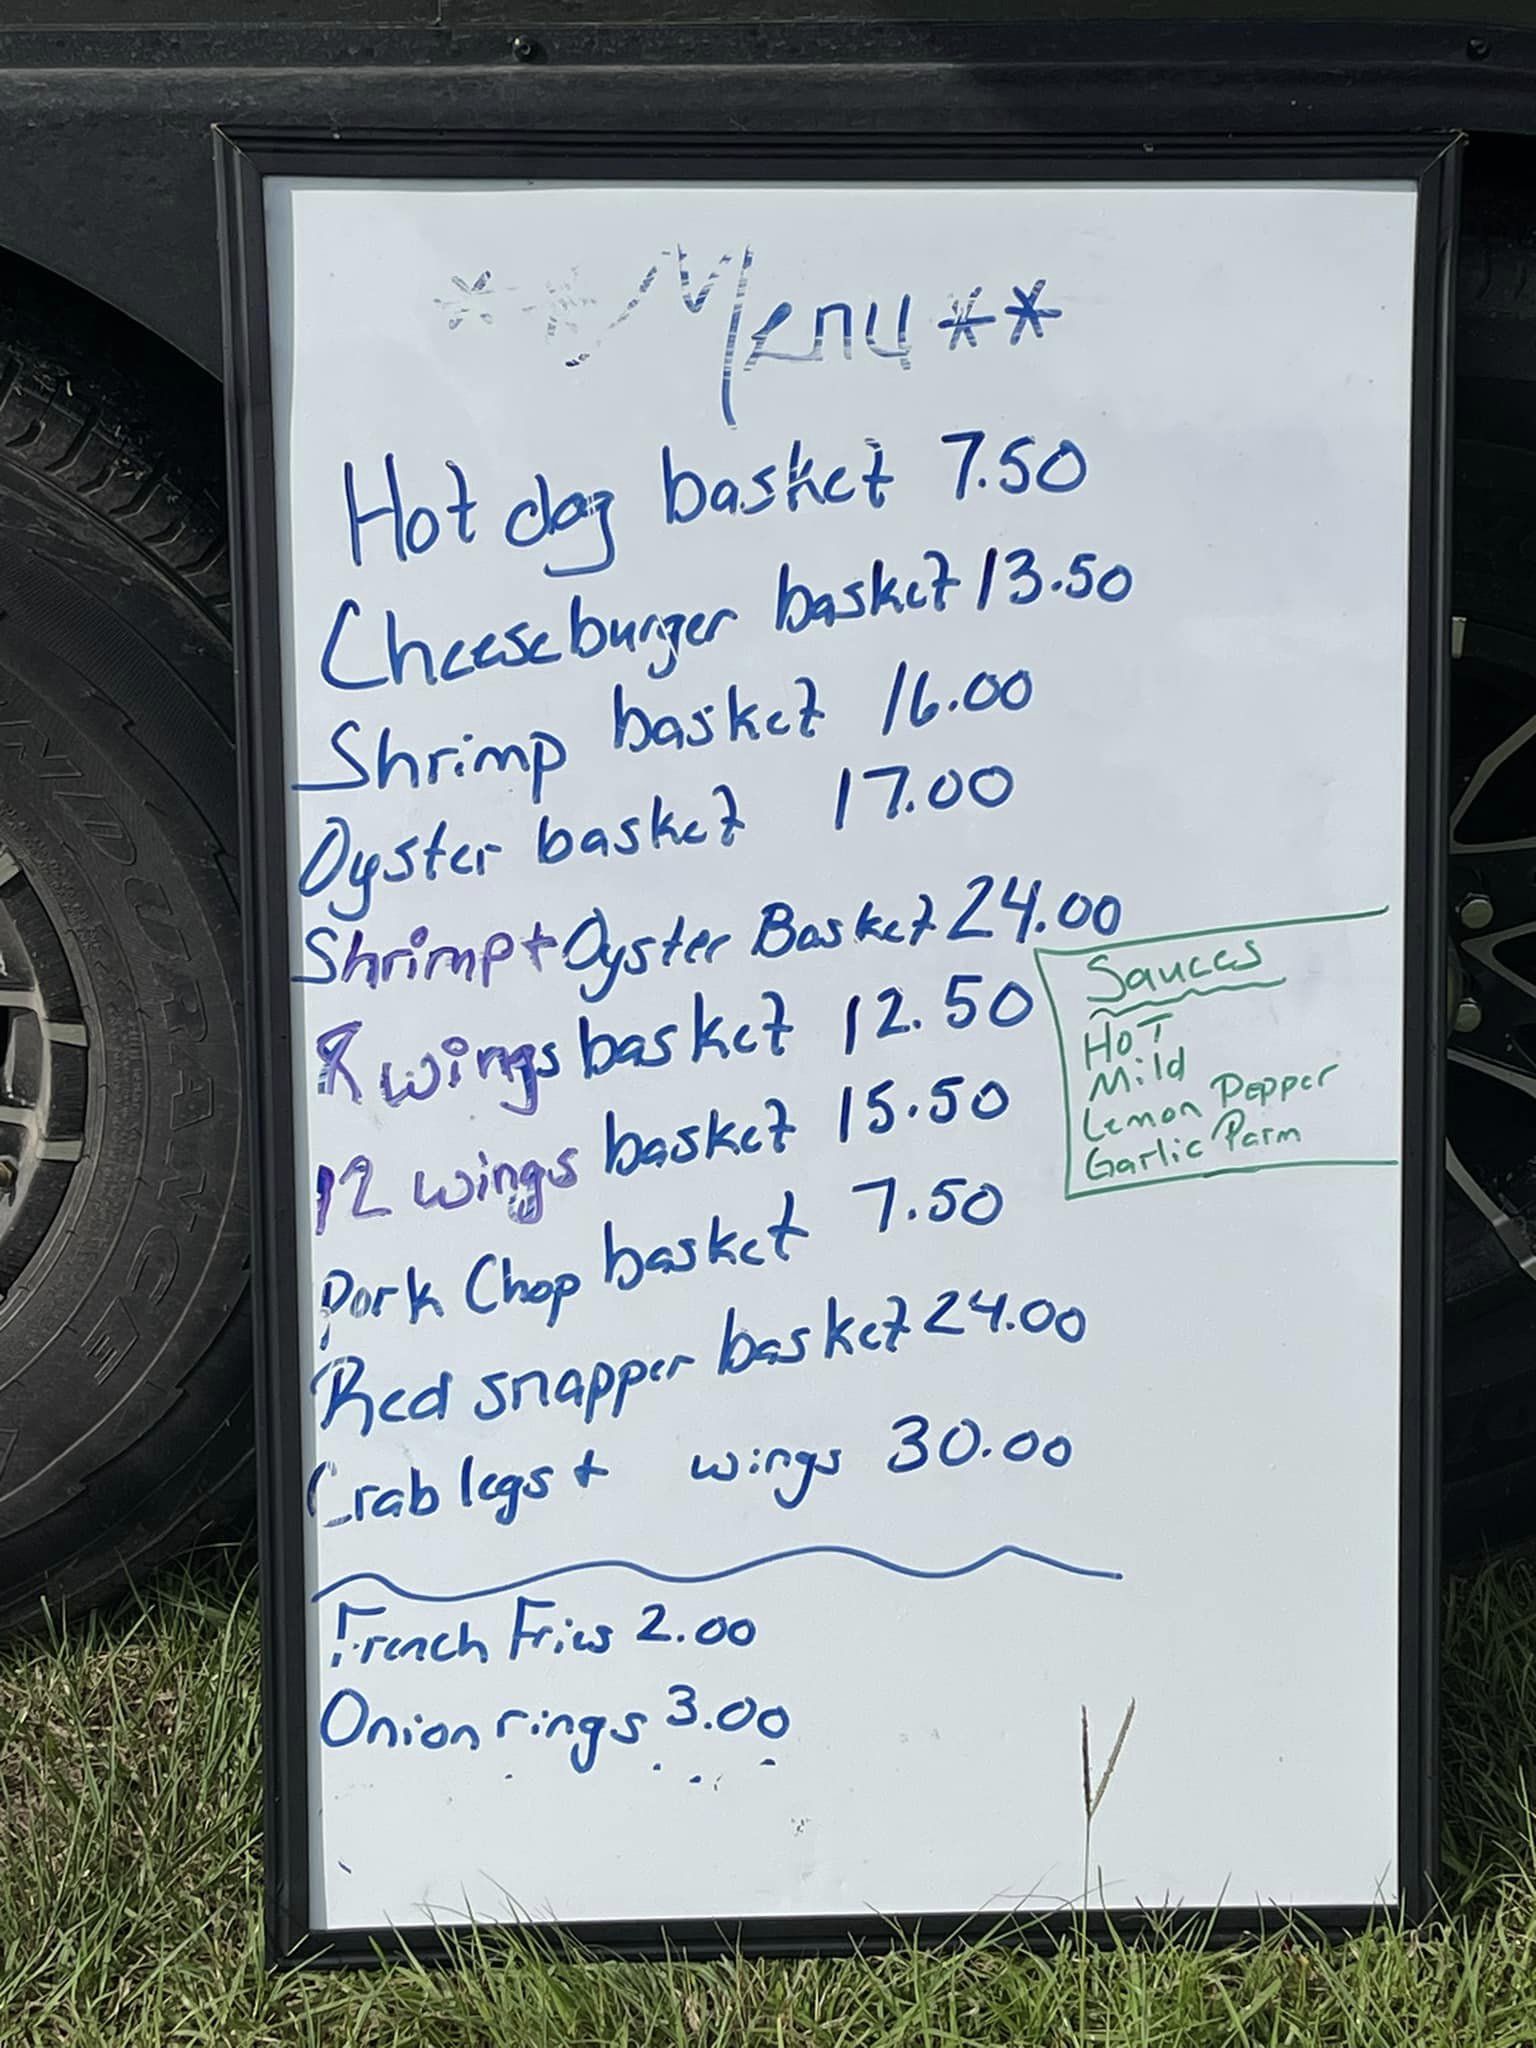 **Menu**
Hot dog basket 7.50
Cheeseburger basket 13.50
Shrimp basket 16.00
Oyster basket 17.00
Shrimp + Oyster Basket 24.00
8 wings basket 12.50
12 wings basket 15.50
Pork Chop basket 7.50
Red snapper basket 24.00
Crab legs + wings 30.00
French Fries 2.00
Onion rings 3.00
Sauces
HoT
Mild
Lemon Pepper
Garlic Parm
ENDURANCE